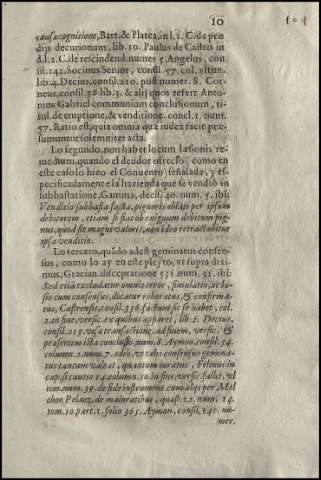 10
causæ cognitione, Bart. & Platea, in l. 1. C. de præ
dijs decurionum, lib. 10. Paulus de Castro in
d.l.2. C. de rescindend. numer 5 Angelus, con
sil. 142. Socinus Senior, consil. 57. col. vltim.
lib. 4. Decius, consil. 210. post numer. 8. Cor
neus, consil. 56 lib. 3. & alij quos refert Anto-
nius Gabriel communium conclusionum, ti-
tul. de emptione, & venditione. concl. 1. num.
57. Ratio est, quia omnia quæ iudex facit præ-
sumuntur solemniter acta.
Lo segundo, non habet locum læsionis re-
medium, quando el deudor ofrecio (como en
este caso lo hizo el Conuento) señalada, y es-
pecificadamente la hazienda que se vendiò in
subhastatione, Gamma, decis. 40. num. 5. ibi:
Venditio subhasta facta, pignoris oblati per ipsum
debitorem, etiam si fiat ob exiguum debitum pig-
nus, quod sit magni valoris, non ideo retractabitur
ipsa venditio.
Lo tercero, quãdo adest geminatus consen-
sus, como lo ay en este pleyto, vt supra dixi-
mus, Gracian. disceptatione 571. num. 31. ibi:
Sed etiã excludatur omnis error, simulatio, ac læ-
sio cum consensus, dicatur roboratus, & confirma-
tus, Castrensis, consil. 336. factum sic se habet, col.
2. in fine, versic. ex quibus apparet, lib. 2. Decius,
consil. 215. visa transactione, ad finem, versic. &
præsertim ista conclusio, num. 8. Aymon, consil. 54.
column. 2. num. 7. adeo, vt talis consensus gemina-
tus tantum valeat, quantum iuratus, Felinus in
cap. si cautio 14. column. 10. in fine, versic. fallit, vl
tim. num. 39. de fide instrument. cum alijs per Mel
chor. Pelaez. de maioratibus, quæst. 22. num. 14.
tom. 10. part. 1. folio 365. Aymon, consil. 141. nu-
mer.